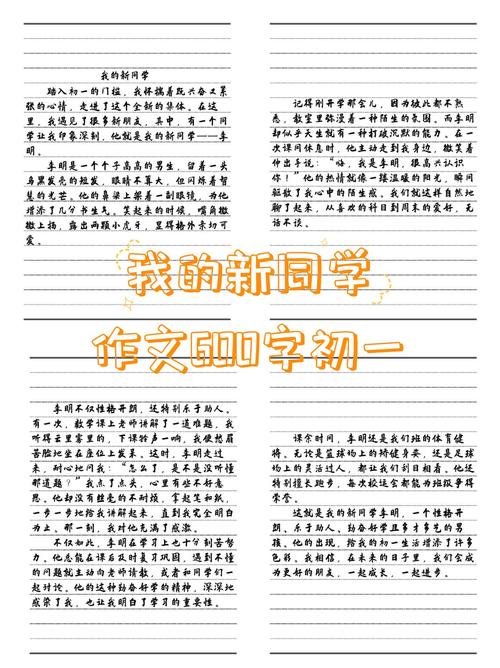 我的新同学
踏入初一的门槛，我怀揣着既兴奋又紧
张的心情，走进了这个全新的集体。在这
里，我遇见了很多新朋友，其中，有一个同
学让我印象深刻，他就是我的新同学——李
明。
李明是一个个子高高的男生，留着一头
乌黑发亮的短发，眼睛不算大，但闪烁着智
慧的光芒。他的鼻梁上架着一副眼镜，为他
增添了几分书生气。笑起来的时候，嘴角微
微上扬，露出两颗小虎牙，显得格外亲切可
爱。
记得刚开学那会儿，因为彼此都不熟
悉，教室里弥漫着一种陌生的氛围。而李明
却似乎天生就有一种打破沉默的能力。在一
次课间休息时，他主动走到我身边，微笑着
伸出手说：“嗨，我是李明，很高兴认识
你！”他的热情就像一缕温暖的阳光，瞬间
驱散了我心中的陌生感。我们就这样自然地
聊了起来，从喜欢的科目到周末的爱好，无
话不谈。
我的新同学
作文600字初一
李明不仅性格开朗，还特别乐于助人。
有一次，数学课上老师讲解了一道难题，我
听得云里雾里的，下课铃声一响，我便愁眉
苦脸地坐在座位上发呆。这时，李明走过
来，耐心地问我：“怎么了，是不是没听懂
那道题？”我点了点头，心里有些不好意
思。他却没有丝毫的不耐烦，拿起笔和纸，
一步一步地给我讲解起来，直到我完全明白
为止。那一刻，我对他充满了感激。
不仅如此，李明在学习上也十分刻苦努
力。他总能在课后及时复习巩固，遇到不懂
的问题就主动向老师请教，或者和同学们一
起讨论。他的这种勤奋好学的精神，深深地
感染了我，也让我明白了学习的重要性。
课余时间，李明还是我们班的体育健
将。无论是篮球场上的矫健身姿，还是足球
场上的灵活过人，都让我们刮目相看。他还
特别擅长跑步，每次校运会都能为班级争得
荣誉。
这就是我的新同学李明，一个性格开
朗、乐于助人、勤奋好学且多才多艺的男
孩。他的出现，给我的初一生活增添了许多
色彩。我相信，在未来的日子里，我们会成
为更好的朋友，一起成长，一起进步。